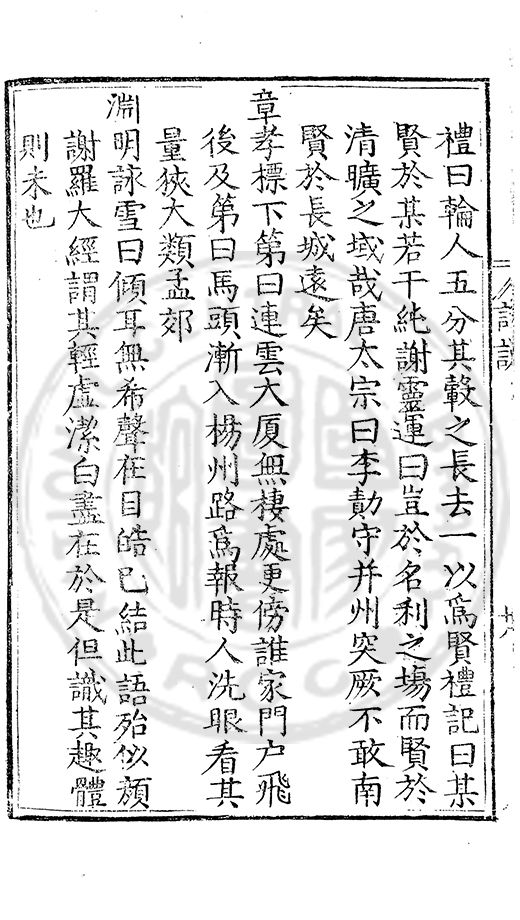 禮曰輪人五分其轂之長去一以爲賢禮記曰某
賢於某若干純謝靈運曰豈於名利之場而賢於
清曠之域哉唐太宗曰李勣守并州突厥不敢南
賢於長城遠矣
章孝標下第曰連雲大厦無棲處更傍誰家門户飛
後及第曰馬頭漸入楊州路爲報時人洗眼看其
量狹大類孟郊
淵明詠雪曰傾耳無希聲在目皓已結此語殆似顏
謝羅大經謂其輕虛潔白盡在於是但識其趣體
則未也